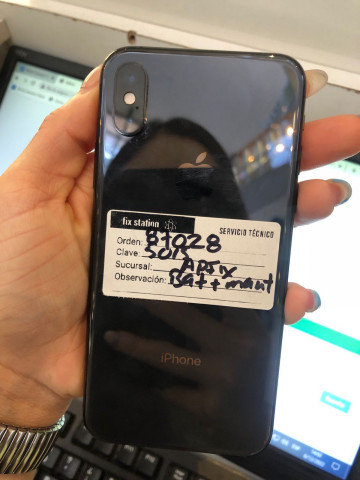 fix station
SERVICIO TÉCNICO
Orden: 87028
Clave:
Sucursal: APFIX
Observación: Bat + mant
iPhone